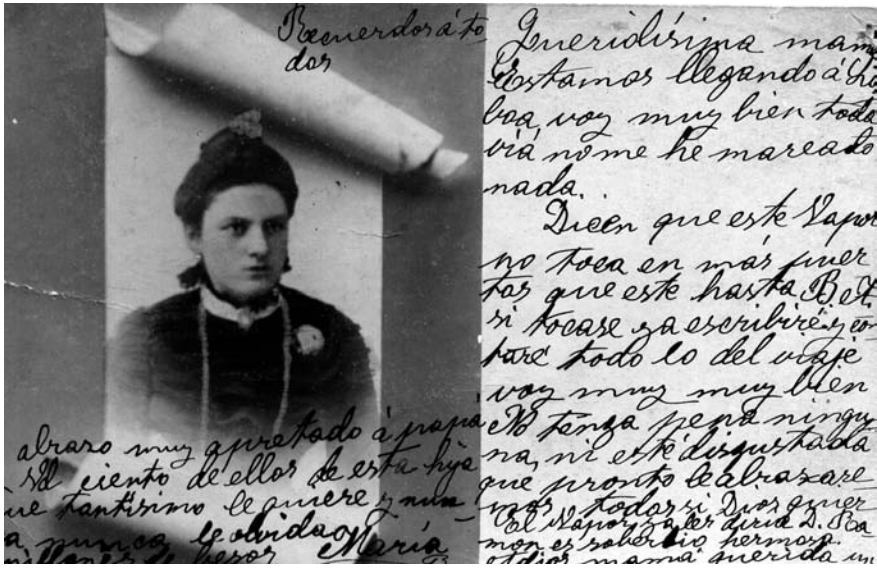 Recuerdos á to
dos
Queridísima mamá
Estamos llegando á Lis
boa, voy muy bien toda
vía no me he mareado
nada.
Dicen que este Vapor
no toca en más puer
tos que este hasta B. A.
si tocase ya escribiré y con
taré todo lo del viaje
voy muy muy bien
No tenga pena ningu
na, ni esté disgustada
que pronto le abrazare
mos todos si Dios quier
El Vapor ya les diria D. Ra
mon es soberbio hermoso.
adios mamá querida un
abrazo muy apretado á papá
ciento de ellos de esta hija
que tantisimo le quiere y nun
a nunca le olvida
millones de besos María